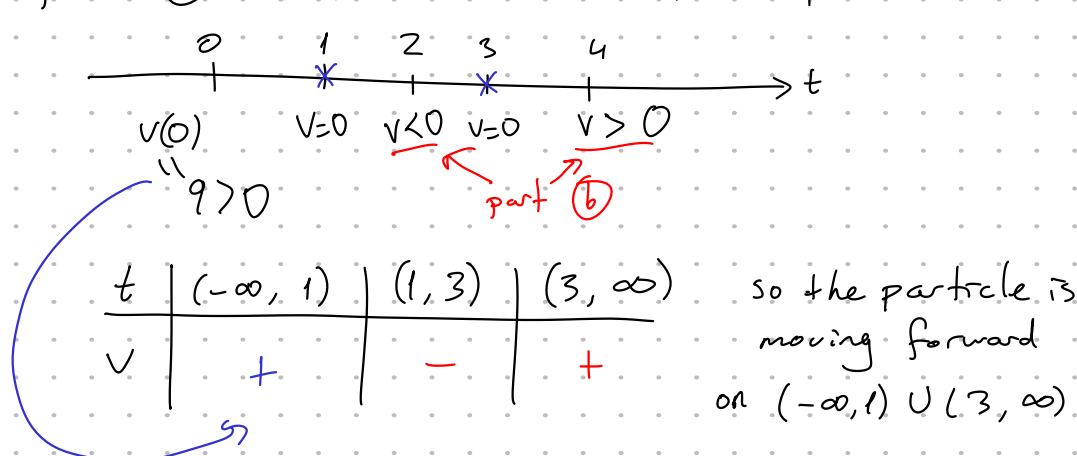 0 1 2 3 4 t
v(0) v=0 v<0 v=0 v > 0
" 9>0
part b
t (-∞, 1) (1, 3) (3, ∞)
v + - +
so the particle is
moving forward
on (-∞,1) ∪ (3, ∞)